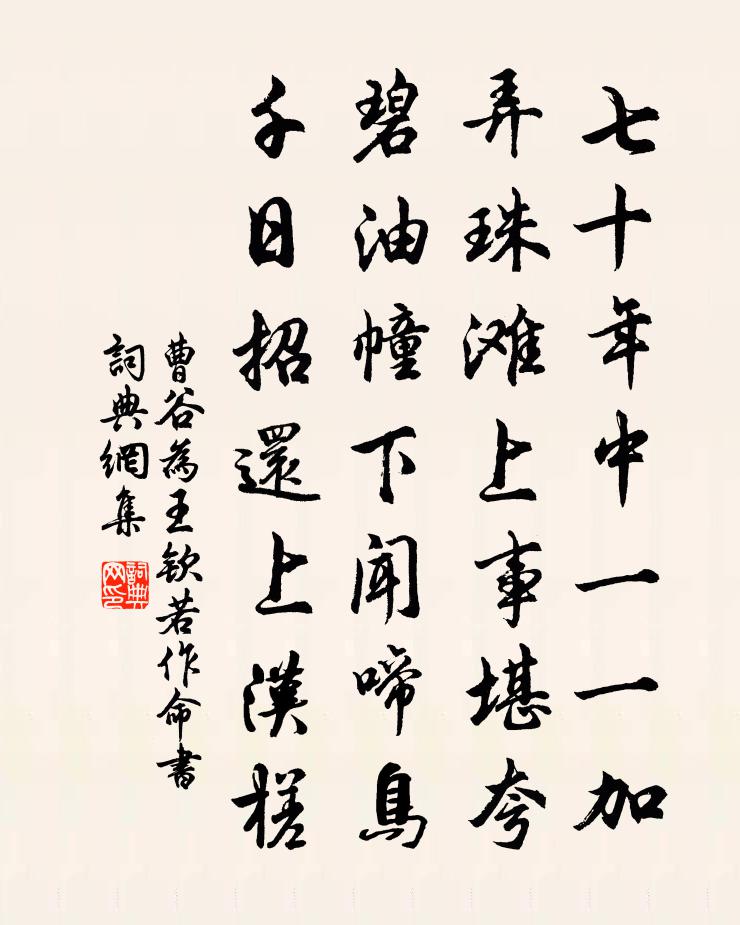 七十年中一一加
弄珠滩上事堪夸
碧油幢下闻啼鳥
千日招還上漢槎
曹谷為王欽若作命書
詞典網集
詞典网印